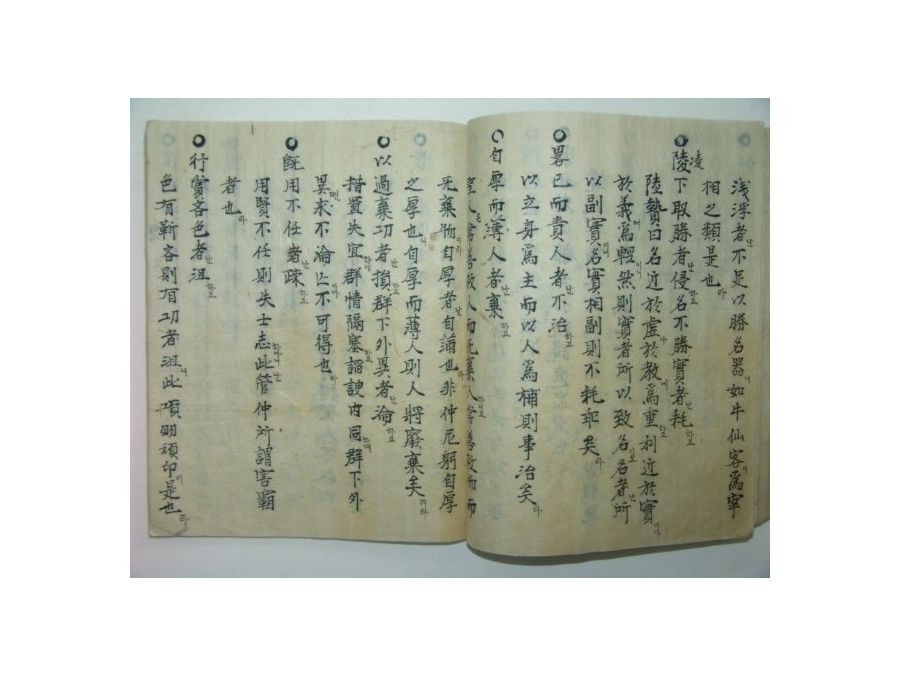 浅浮者난不足以勝名器如牛仙客爲宰
相之類是也라
陵凌下取勝者난侵하고名不勝實者난耗하고
陸贄曰名近於虛於教爲重하고利近於實이나
於義爲輕然則實者所以致名이오名者난所
以副實名實相副則不耗乖矣라
畧己而責人者난不治하고
以立身爲主而以人爲補則事治矣라
自厚而薄人者난棄하고
聖人은常善救人而无棄人常善救物而
无棄物自厚者난自滿也非仲尼躬自厚
之厚也自厚而薄人則人將廢棄矣리라
以過棄功者난損하고群下外異者난淪하고
措置失宜群情隔塞하고謟諛內同하며群下外
異면來不淪亡不可得也라
旣用不任者난疎하고
用賢不任則失士志하나니此난管仲所謂害霸
者也라
行賞吝色者난沮하고
色有靳吝則有功者沮니此項羽刓印이是也라